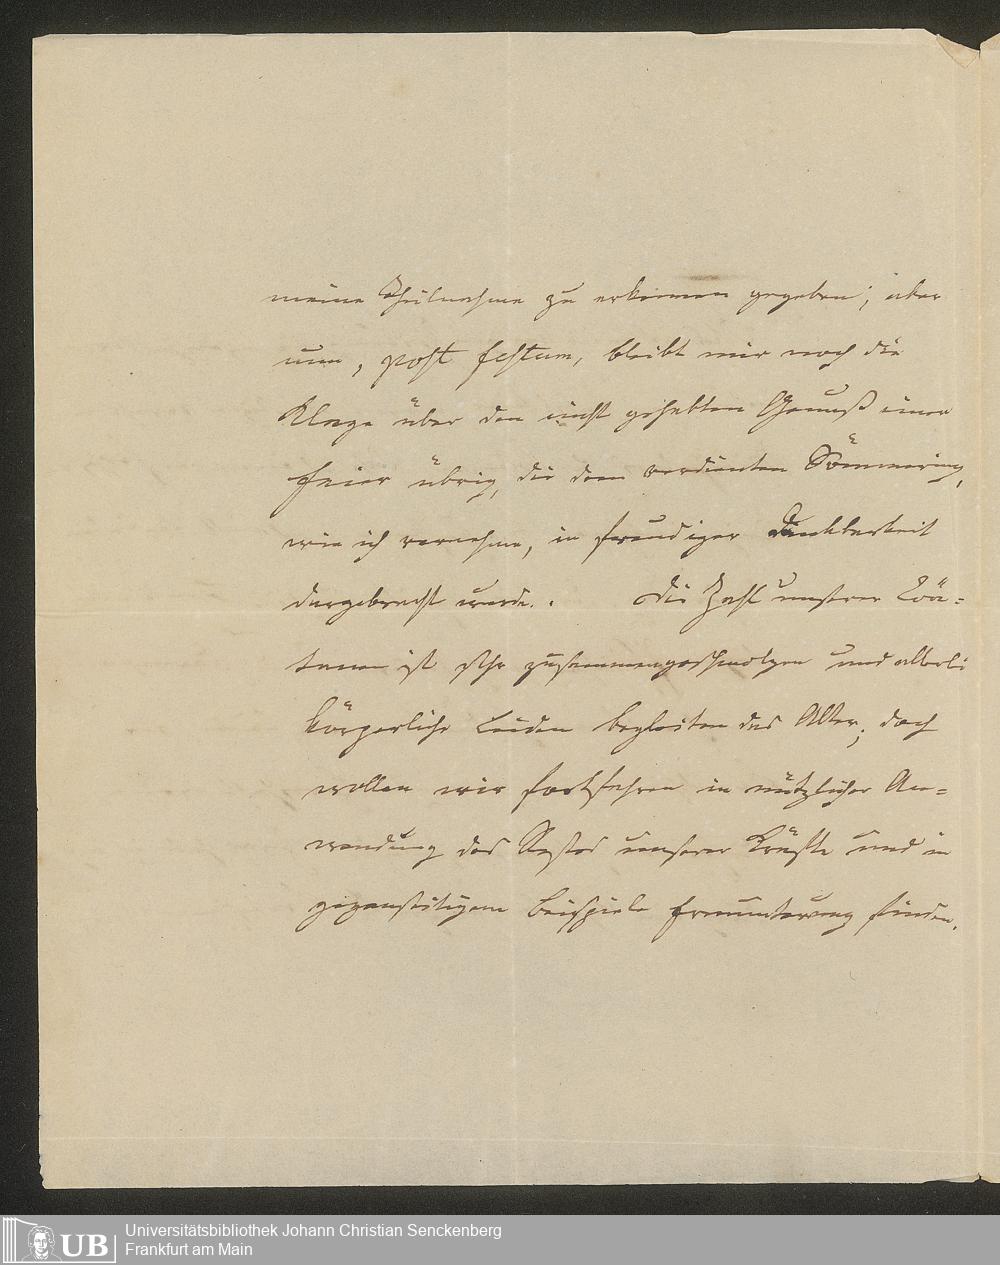 meine Theilnahme zu erkennen gegeben; aber
nun, post festum, bleibt mir noch die
Klage über den nicht gehabten Genuß einer
Feier übrig, die dem verdienten Sömmering,
wie ich vernehme, in freudiger Dankbarkeit
dargebracht wurde. Die Zahl unserer Coä-
tanen ist sehr zusammengeschmolzen und allerlei
körperliche Leiden begleiten das Alter; doch
wollen wir fortfahren in nützlicher An-
wendung des Restes unserer Kräfte und in
gegenseitigem Beispiele Ermunterung finden.
UB
Universitätsbibliothek Johann Christian Senckenberg
Frankfurt am Main